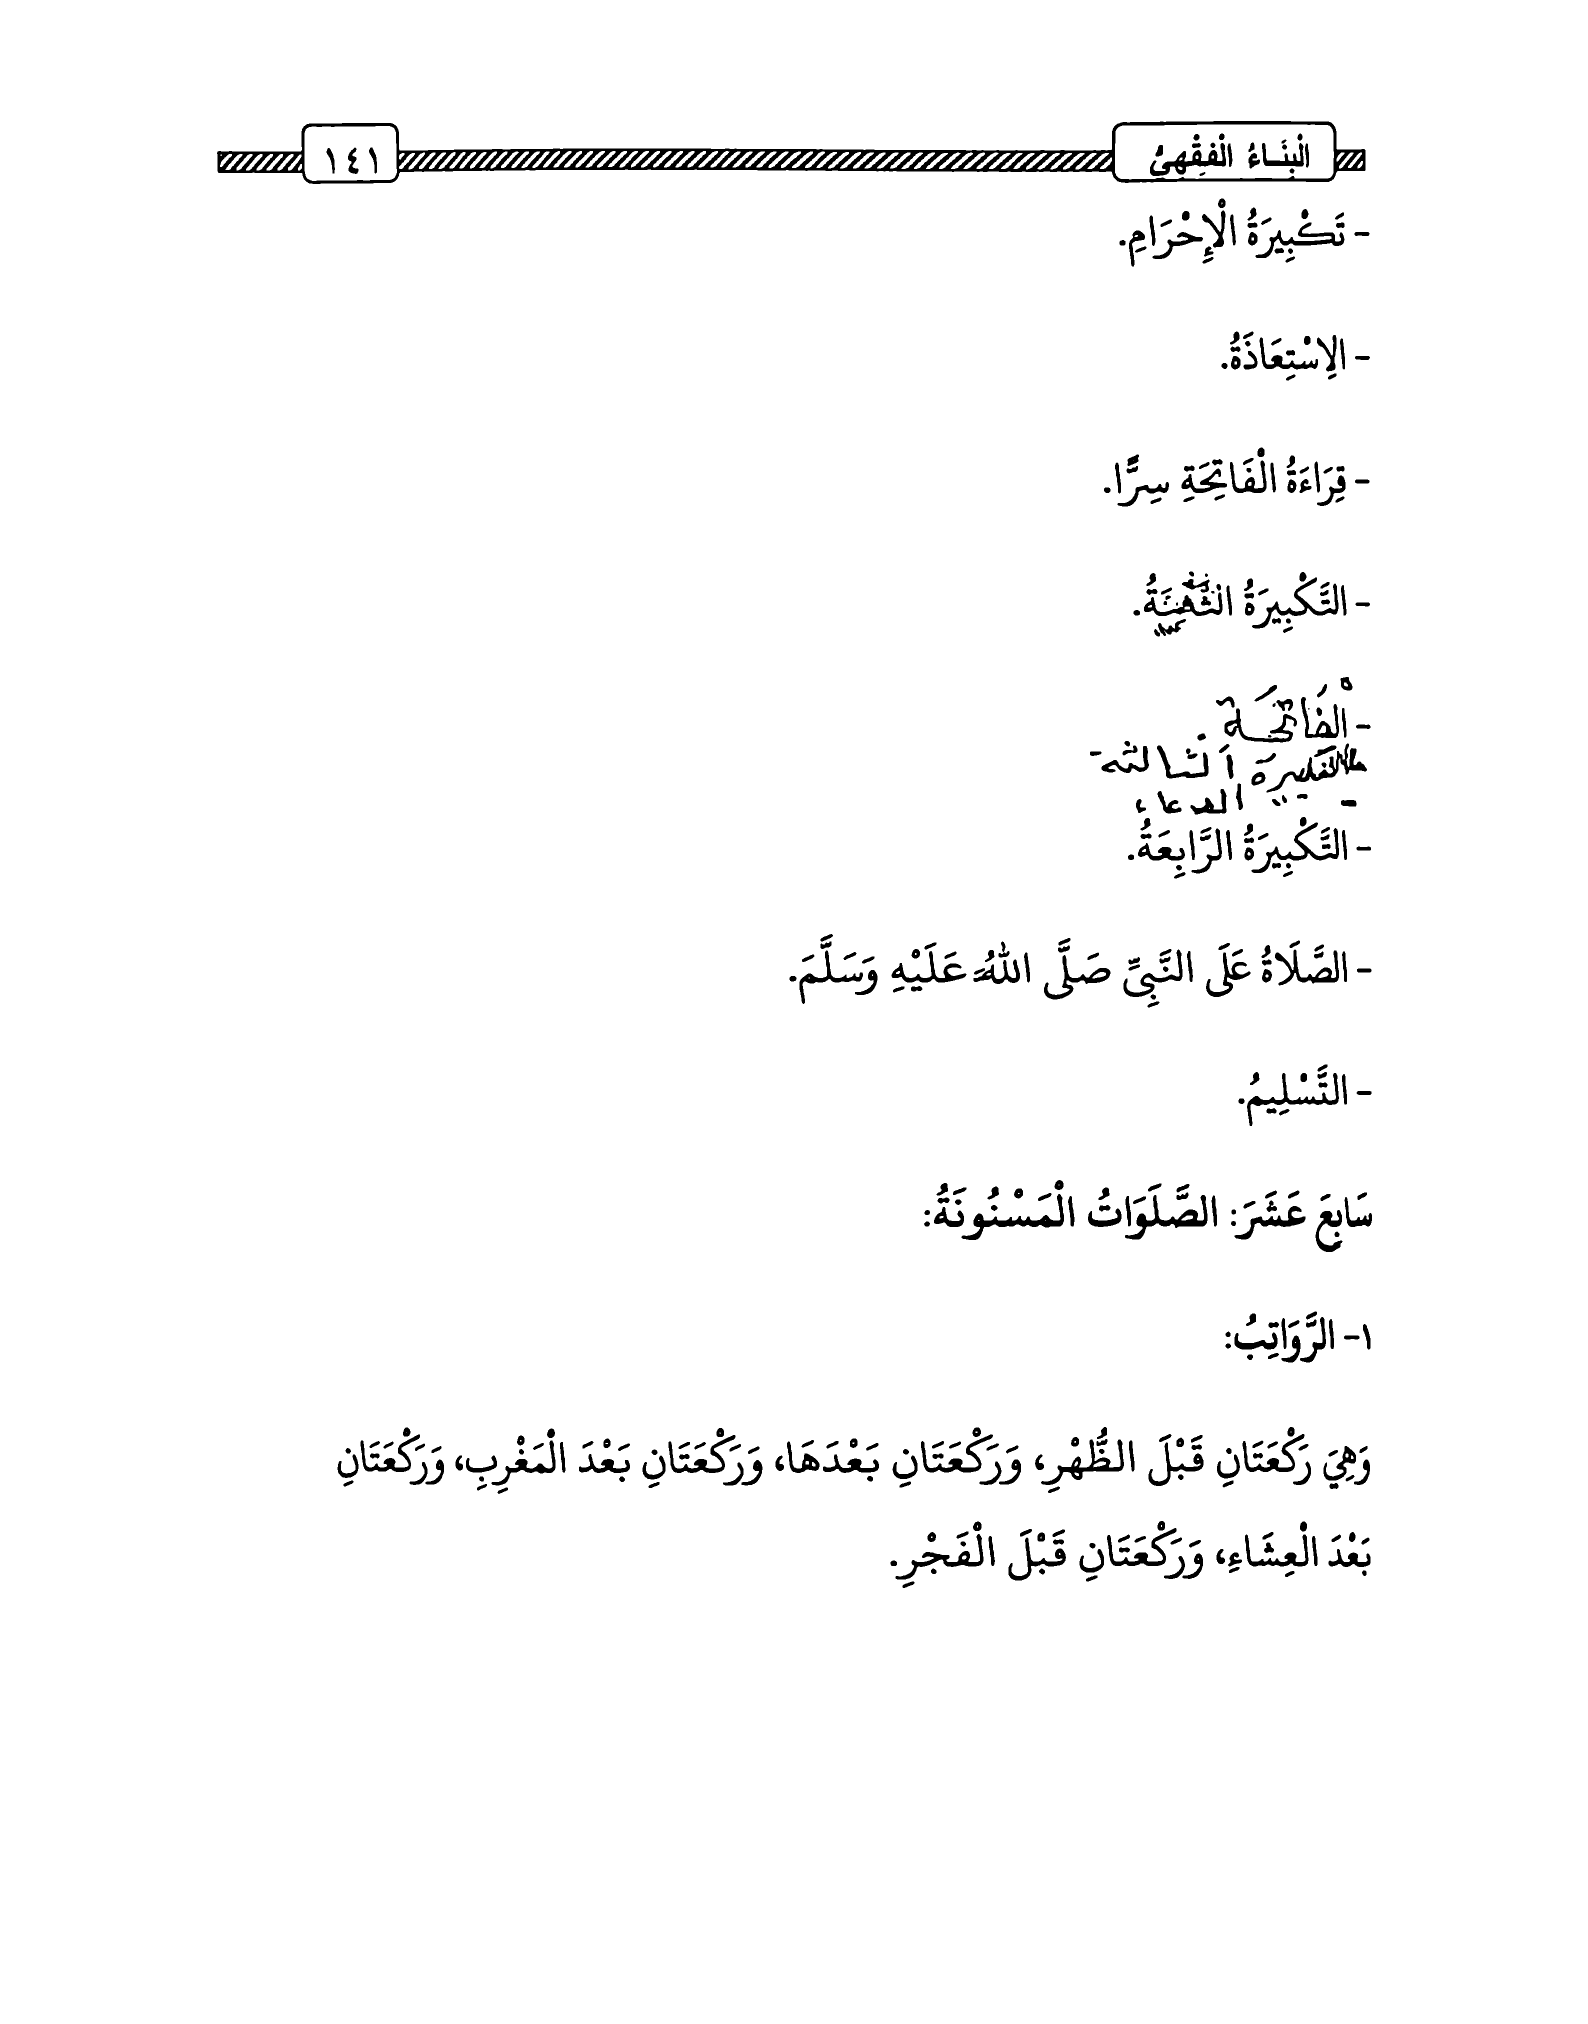 الْبِنَاءُ الْفِقْهِيُّ ١٤١
- تَكْبِيرَةُ الْإِحْرَامِ.
- الِاسْتِعَاذَةُ.
- قِرَاءَةُ الْفَاتِحَةِ سِرًّا.
- التَّكْبِيرَةُ الثَّانِيَةُ.
- الْفَاتِحَة
التكبيرة الثالثة
- الدعاء
- التَّكْبِيرَةُ الرَّابِعَةُ.
- الصَّلَاةُ عَلَى النَّبِيِّ صَلَّى اللهُ عَلَيْهِ وَسَلَّمَ.
- التَّسْلِيمُ.
سَابِعَ عَشَرَ: الصَّلَوَاتُ الْمَسْنُونَةُ:
١- الرَّوَاتِبُ:
وَهِيَ رَكْعَتَانِ قَبْلَ الظُّهْرِ، وَرَكْعَتَانِ بَعْدَهَا، وَرَكْعَتَانِ بَعْدَ الْمَغْرِبِ، وَرَكْعَتَانِ
بَعْدَ الْعِشَاءِ، وَرَكْعَتَانِ قَبْلَ الْفَجْرِ.